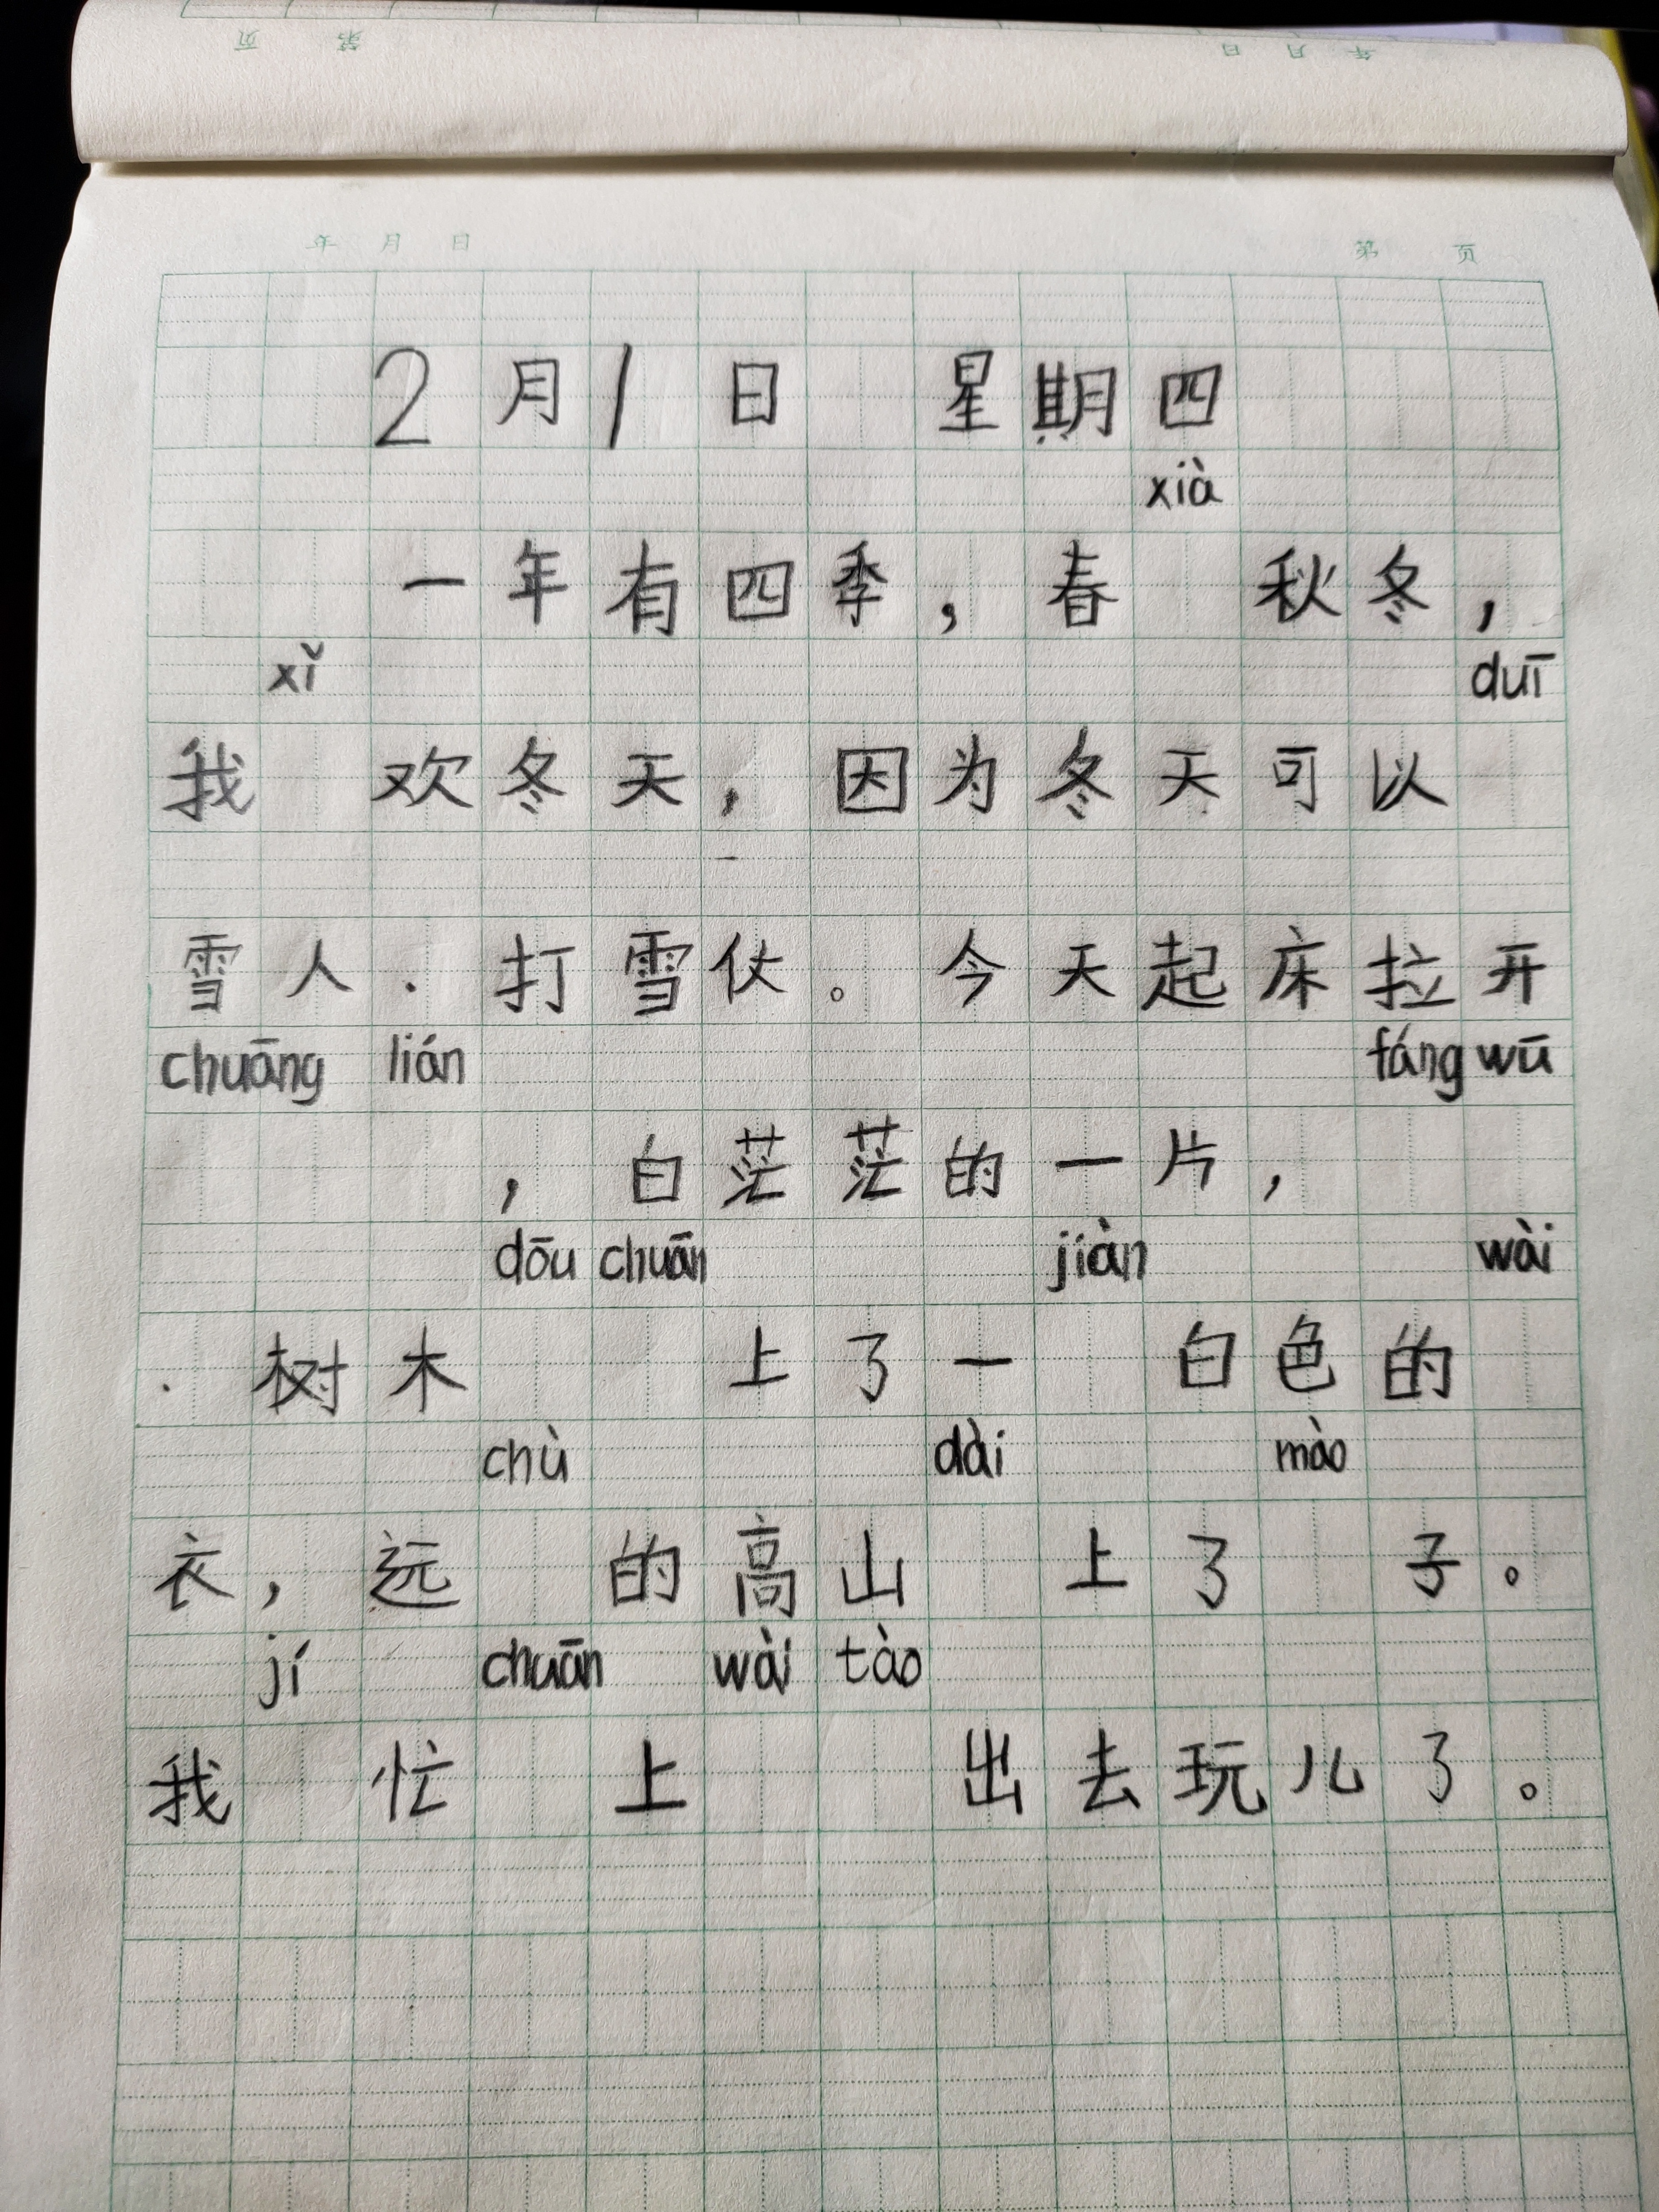 页 第 日 月 年
年 月 日 第 页
2月1日 星期四
xià
一年有四季，春 秋冬，
xǐ duī
我 欢冬天，因为冬天可以
雪人.打雪仗。今天起床拉开
chuāng lián fáng wū
，白茫茫的一片，
dōu chuān jiàn wài
.树木 上了一 白色的
chù dài mào
衣，远 的高山 上了 子。
jí chuān wài tào
我 忙 上 出去玩儿了。